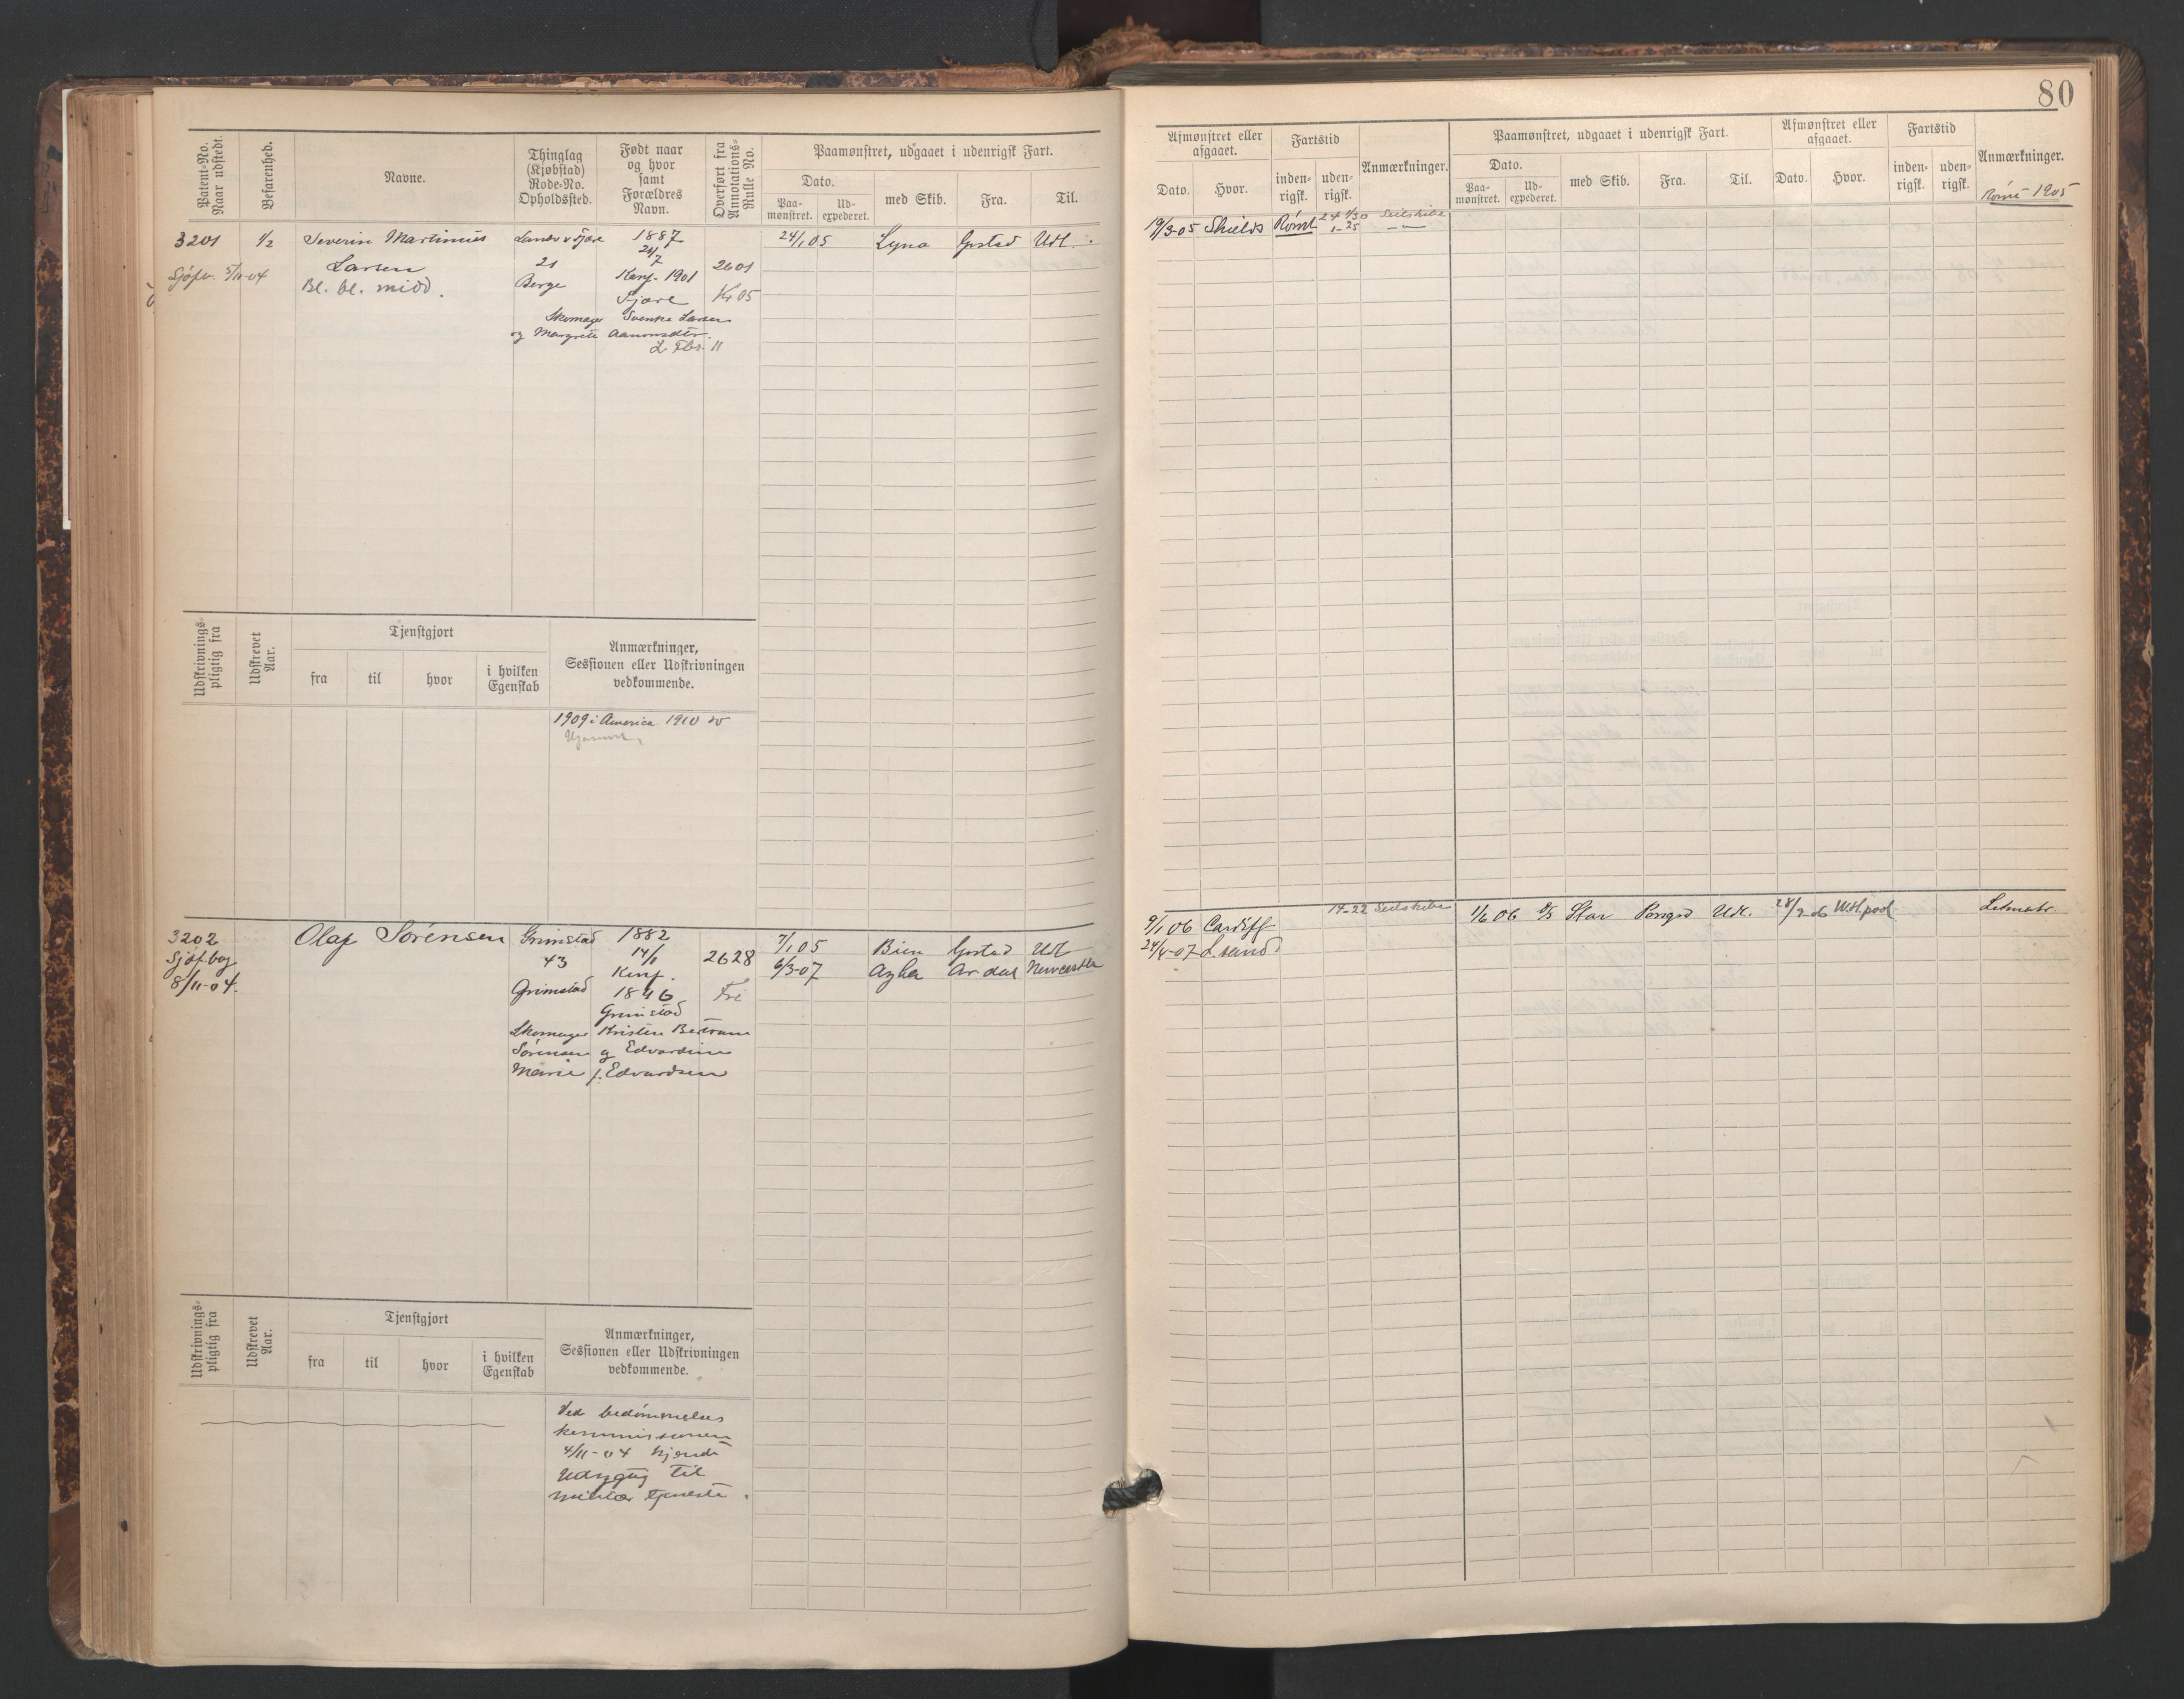 80
Patent-No. Naar udstedt.
Befarenhed.
Navne.
Thinglag (Kjøbstad) Rode-No. Opholdssted.
Født naar og hvor samt Forældres Navn.
Overført fra Annotations-Rulle No.
Paamønstret, udgaaet i udenrigsk Fart.
Dato.
Paa-mønstret.
Ud-expederet.
med Skib.
Fra.
Til.
3201
1/2
Severin Martinius
Landv v Fjære
1887
24/1 05
Lyna
Grstad
Udl.
24/7
Sjøfv. 5/11-04
Larsen
21
2601
Bl. bl. midd.
Berge
Konf. 1901
Fjære
Kr 05
Skomager Svenke Larsen
og Margrete Aanonsdtr.
L. Fbr. 11
Udskrivnings-pligtig fra
Udskrevet Aar.
Tjenstgjort
fra
til
hvor
i hvilken Egenskab
Anmærkninger,
Sessionen eller Udskrivningen
vedkommende.
1909 i America 1910 do
3202
Olaf Sørensen
Grimstad
1882
7/1 05
Bien
Grstad
Udl
Sjøf bog
43
14/1
2628
6/3-07
Azha
Ardal
Newcastle
8/11-04.
Konf.
Grimstad
1896
Fri
Grimstad
Skomager Kristen Bertram
Sørensen og Edvardine
Marie f. Edvardsen
Udskrivnings-pligtig fra
Udskrevet Aar.
Tjenstgjort
fra
til
hvor
i hvilken Egenskab
Anmærkninger,
Sessionen eller Udskrivningen
vedkommende.
Ved bedømmelses
kommissionen
4/11-04 kjendt
Udygtig til
militær tjeneste.
Afmønstret eller afgaaet.
Fartstid
Anmærkninger.
Paamønstret, udgaaet i udenrigsk Fart.
Afmønstret eller afgaaet.
Fartstid
Anmærkninger.
Dato.
Hvor.
inden-rigsk.
uden-rigsk.
Dato.
Paa-mønstret.
Ud-expederet.
med Skib.
Fra.
Til.
Dato.
Hvor.
inden-rigsk.
uden-rigsk.
Rømt 1905
19/3-05
Shields
Rømt
Seilskibe
1-25
9/1 06
Cardiff
14-22
Seilskibe
1/6 06
Star
Porsgrd
Udl.
28/2 06
Letmatr.
24/4-07
L.sund